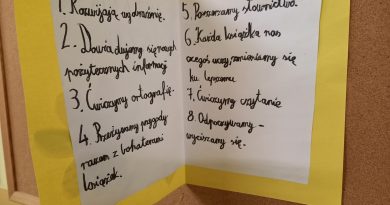 1. Rozwijają wyobraźnię.
2. Dowiadujemy się nowych
pożytecznych informacji
3. Ćwiczymy ortografię.
4. Przeżywamy przygody
razem z bohaterami
książek.
5. Poszerzamy słownictwo.
6. Każda książka nas
czegoś uczy, zmieniamy się
ku lepszemu.
7. Ćwiczymy czytanie
8. Odpoczywamy -
wyciszamy się.